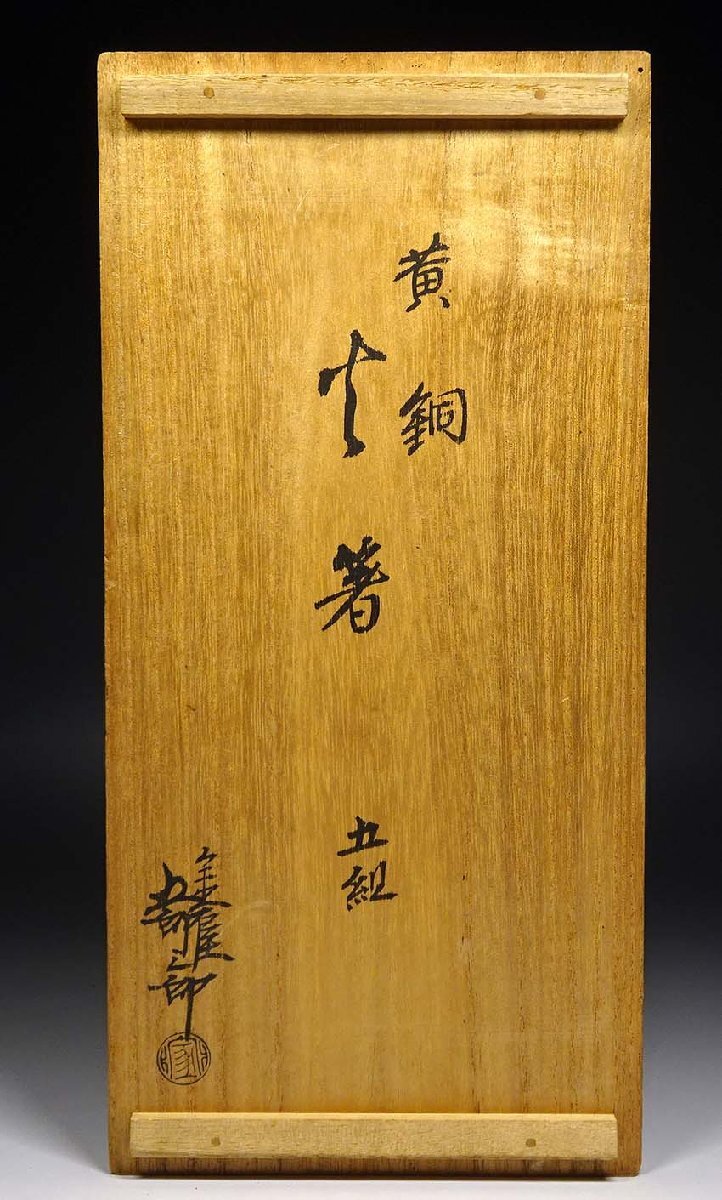 黄銅
火箸
五組
金屋
五郎三郎